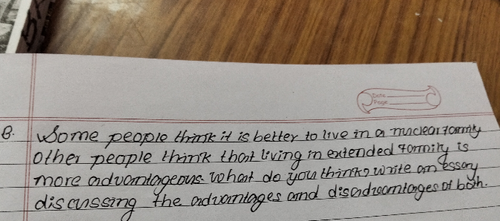 Date
Page
B. Some people think it is better to live in a nuclear family
other people think that living in extended family is
more advantageous. What do you think? write an essay
discussing the advantages and disadvantages of both.